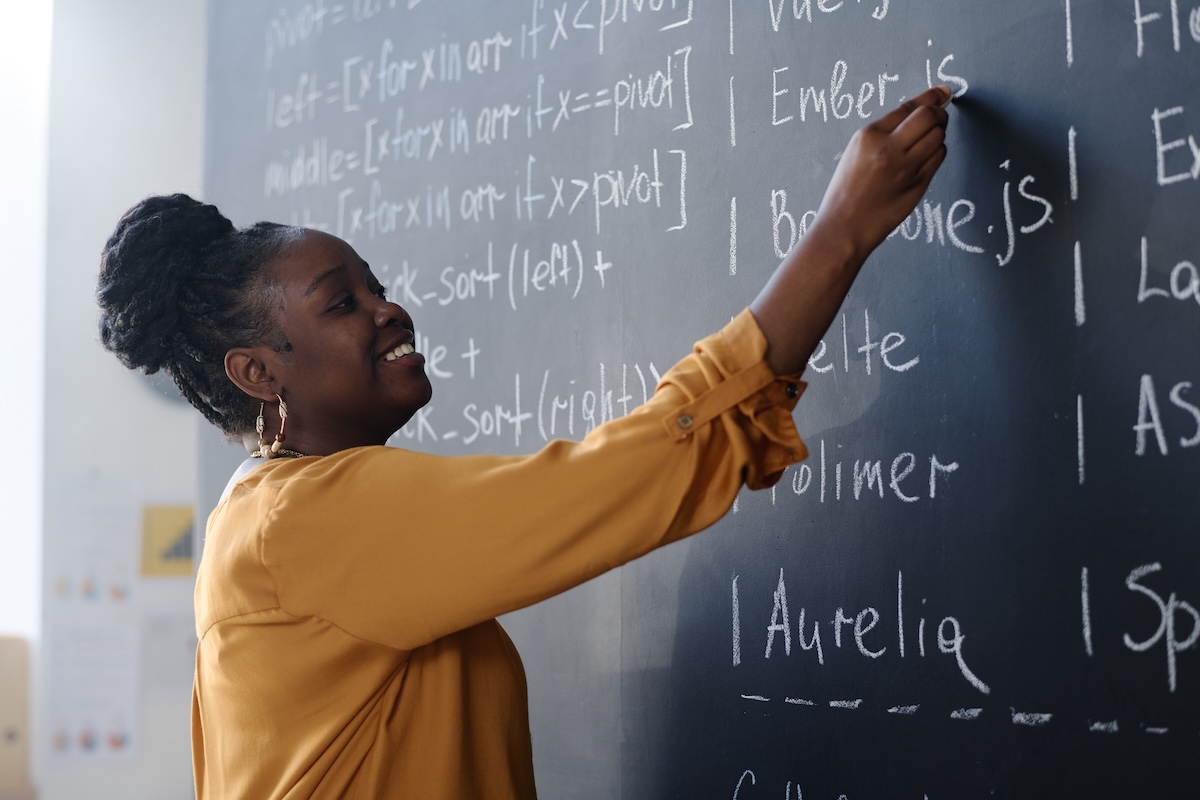 pivot=arr[
left=[x for x in arr if x<pivot]
middle=[x for x in arr if x==pivot]
[x for x in arr if x>pivot]
ick_sort(left)+
le +
ck_sort(right)
| Vue.js
| Ember.js
| Ba one.js
elte
Polimer
| Aurelia
| Flo
| Ex
| La
| AS
| Sp